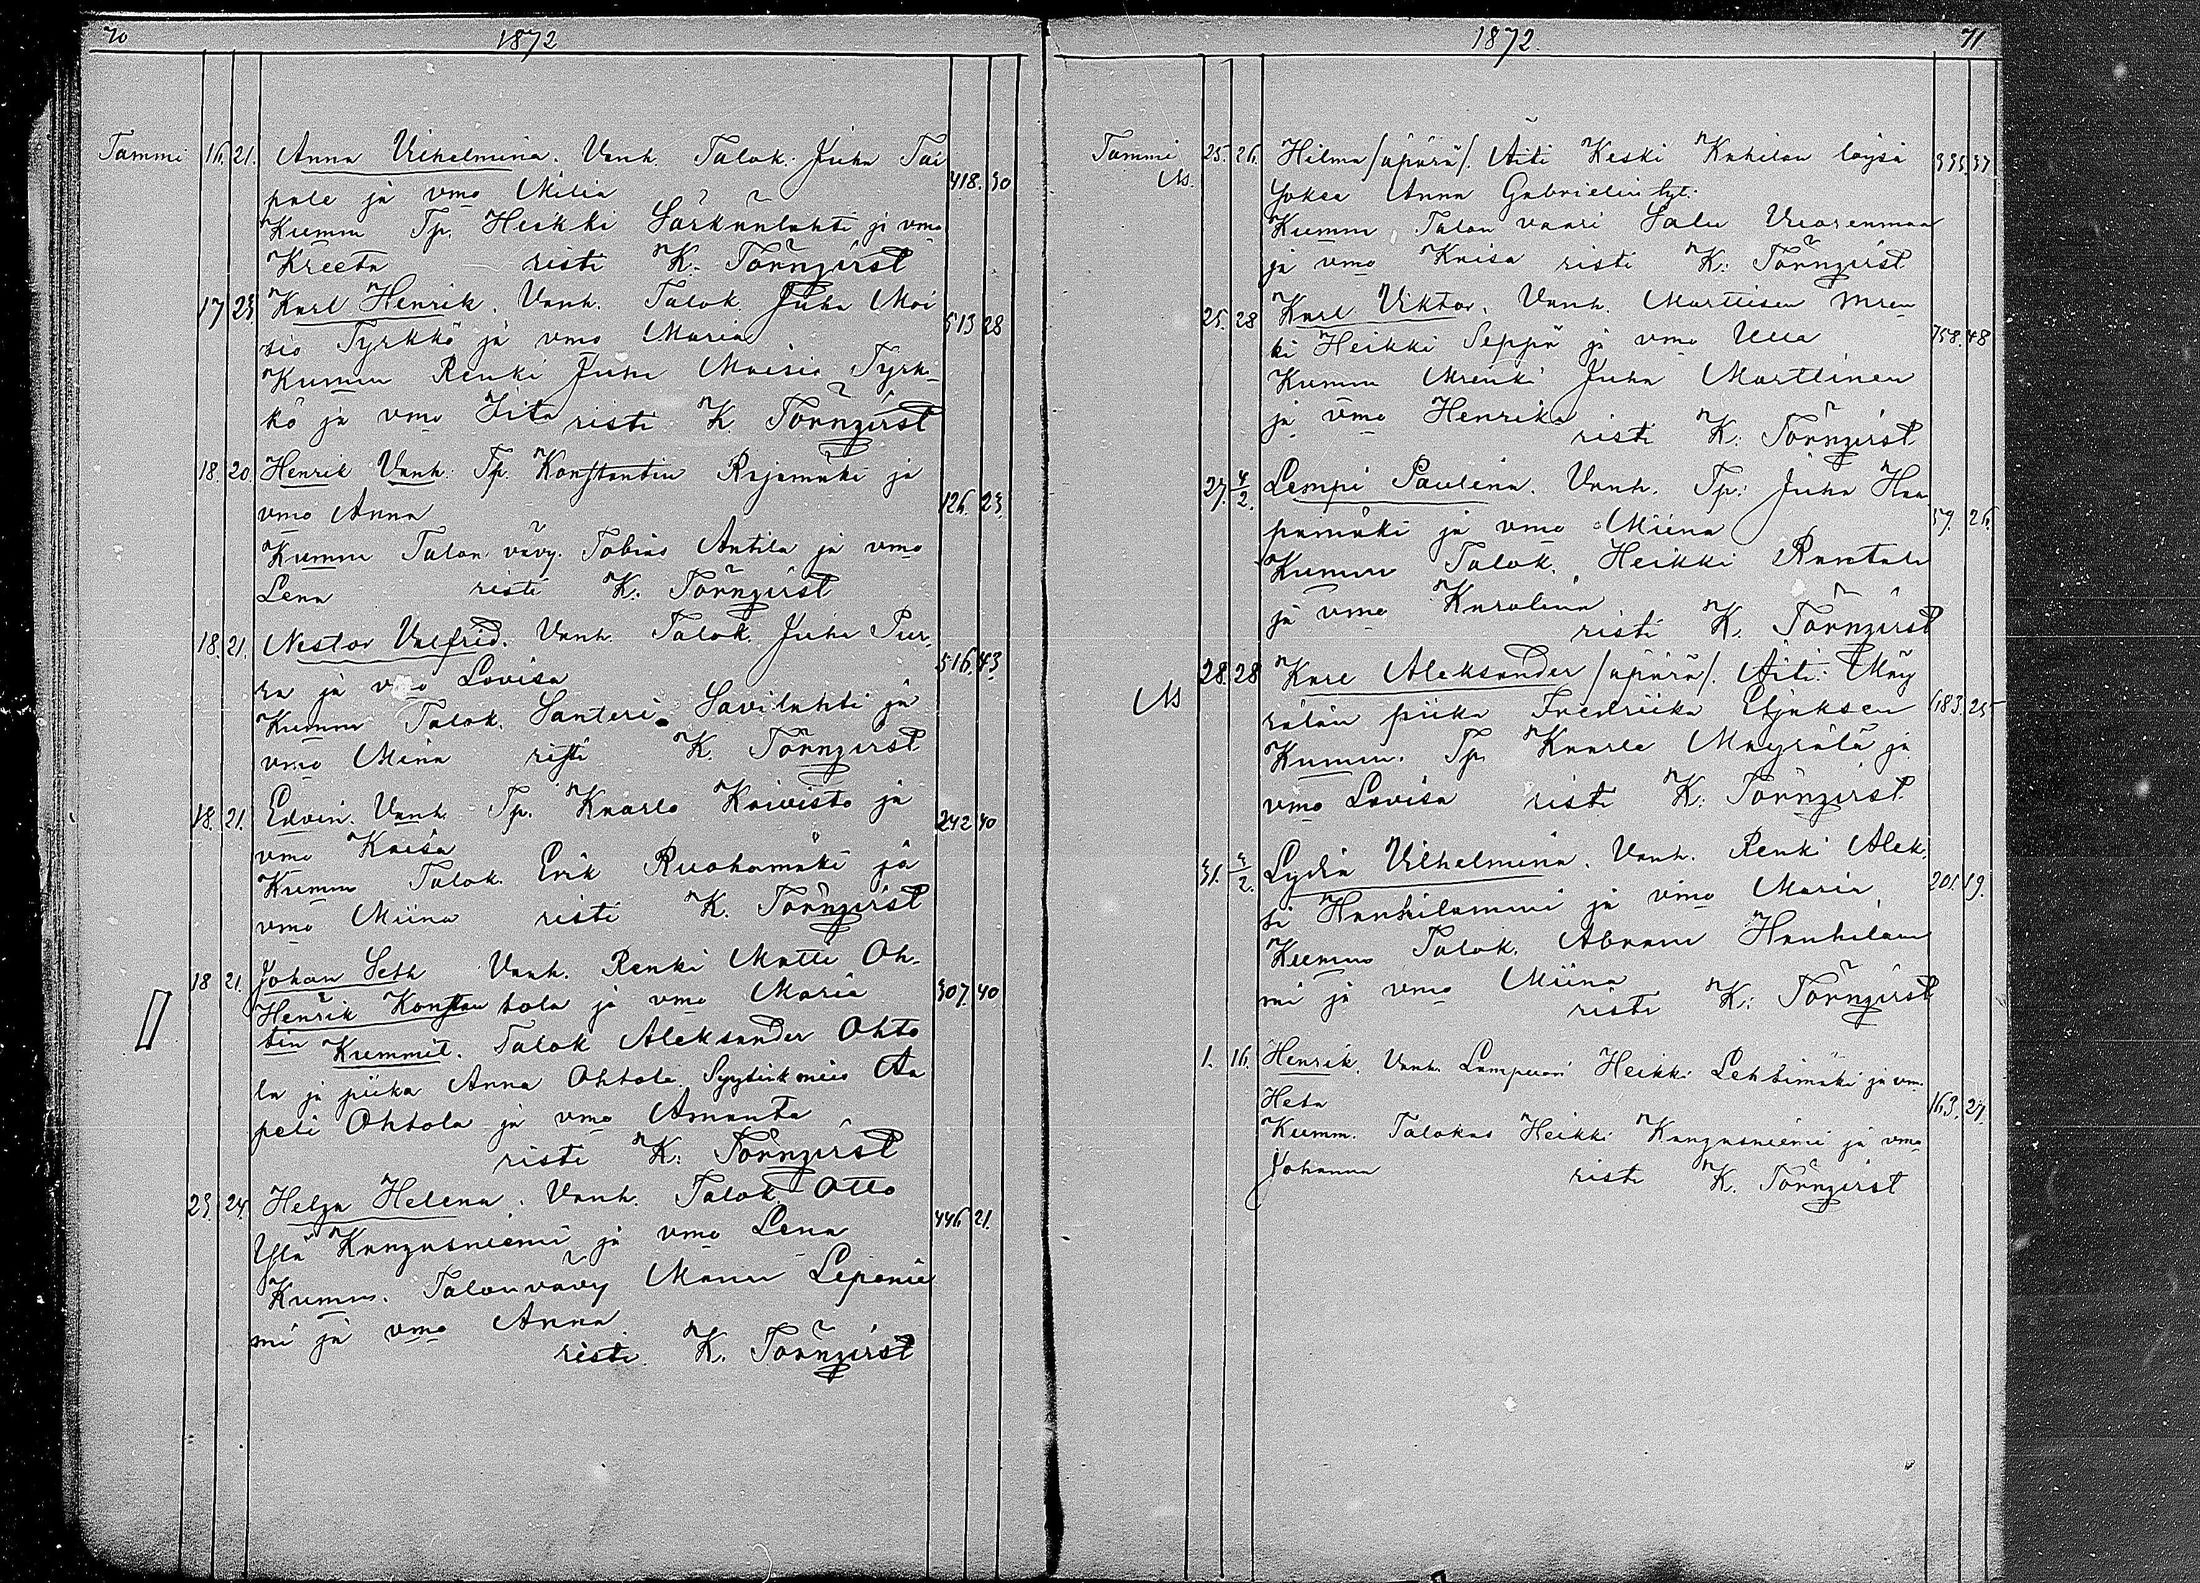 70
1872
Tammi 16. 21. Anna Vilhelmina. Vanh. Talok. Juha Tai
pale ja vmo Milia 418. 30
Kumm Tp. Heikki Särkänlahti ja vmo
Kreeta risti K. Törnqvist
17 23. Karl Henrik. Vanh. Talok. Juha Moi
sio Tyrkkö ja vmo Maria 513 28
Kumm Renki Juha Moisio Tyrk-
kö ja vmo Iita risti K. Törnqvist
18. 20. Henrik Vanh. Tp. Konstantin Rajamäki ja
vmo Anna 126. 23.
Kumm Talon vävy. Tobias Antila ja vmo
Lena risti K. Törnqvist
18. 21. Nestor Valfrid. Vanh. Talok. Juha Pur-
ra ja vmo Lovisa 516. 43.
Kumm Talok. Santeri Savilahti ja
vmo Miina risti K. Törnqvist
18. 21. Edvin. Vanh. Tp. Kaarlo Koivisto ja
vmo Kaisa 242 40
Kumm Talok. Erik Ruohomäki ja
vmo Miina risti K. Törnqvist
18 21. Johan Seth Vanh. Renki Matti Oh-
Henrik Konstan tola ja vmo Maria 307. 40
tin Kummit. Talok Aleksander Ohto
la ja piika Anna Ohtola. Syytinkmies Aa
peli Ohtola ja vmo Amanta
risti K. Törnqvist
23. 24. Helga Helena. Vanh. Talok. Otto
Ylä Kangasniemi ja vmo Lena 446. 21.
Kumm. Talonvävy Manu Lepänie
mi ja vmo Anna
risti K. Törnqvist
1872
71
Tammi 25. 26. Hilma /äpärä/. Äiti Keski Kahilan löysä 335. 37.
Ns. Jokea Anna Gabrielin tyt.
Kumm Talon vaari Salu Vuorenmaa
ja vmo Kaisa risti K. Törnqvist
25. 28 Karl Viktor. Vanh. Marttisen Mren
ki Heikki Seppä ja vmo Ulla 758. 48
Kumm Mrenki Juha Marttinen
ja vmo Henrika risti K. Törnqvist
27. 4/2. Lempi Paulina. Vanh. Tp. Juha Haa
pamäki ja vmo Miina 57. 26.
Kumm Talok. Heikki Rantala
ja vmo Karolina risti K. Törnqvist
28. 28 Karl Aleksander /äpärä/. Äiti: Mäy
Ns rälän piika Fredriika Eljaksen 683. 25
Kumm. Tp Kaarle Mäyrälä ja
vmo Lovisa risti K. Törnqvist
31. 3/2. Lydia Vilhelmina. Vanh. Renki Alek.
si Hanhilammi ja vmo Maria 201. 19.
Kumm Talok. Abram Hanhilam
mi ja vmo Miina risti K. Törnqvist
1. 16. Henrik. Vanh. Lampuori Heikki Lehtimäki ja vmo
Heta 163. 27.
Kumm. Talokas Heikki Kangasniemi ja vmo
Johanna risti K. Törnqvist